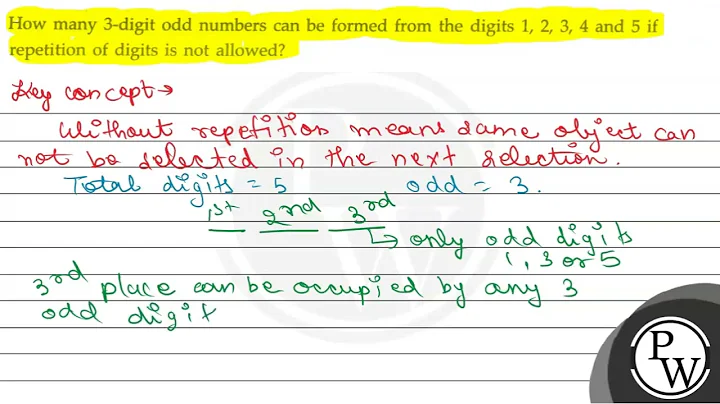 How many 3-digit odd numbers can be formed from the digits 1, 2, 3, 4 and 5 if
repetition of digits is not allowed?
Key concept→
Without repetition means same object can
not be selected in the next selection.
Total digits = 5 odd = 3.
1st 2nd 3rd
↳ only odd digits
1, 3 or 5
3rd place can be occupied by any 3
odd digit
P
W